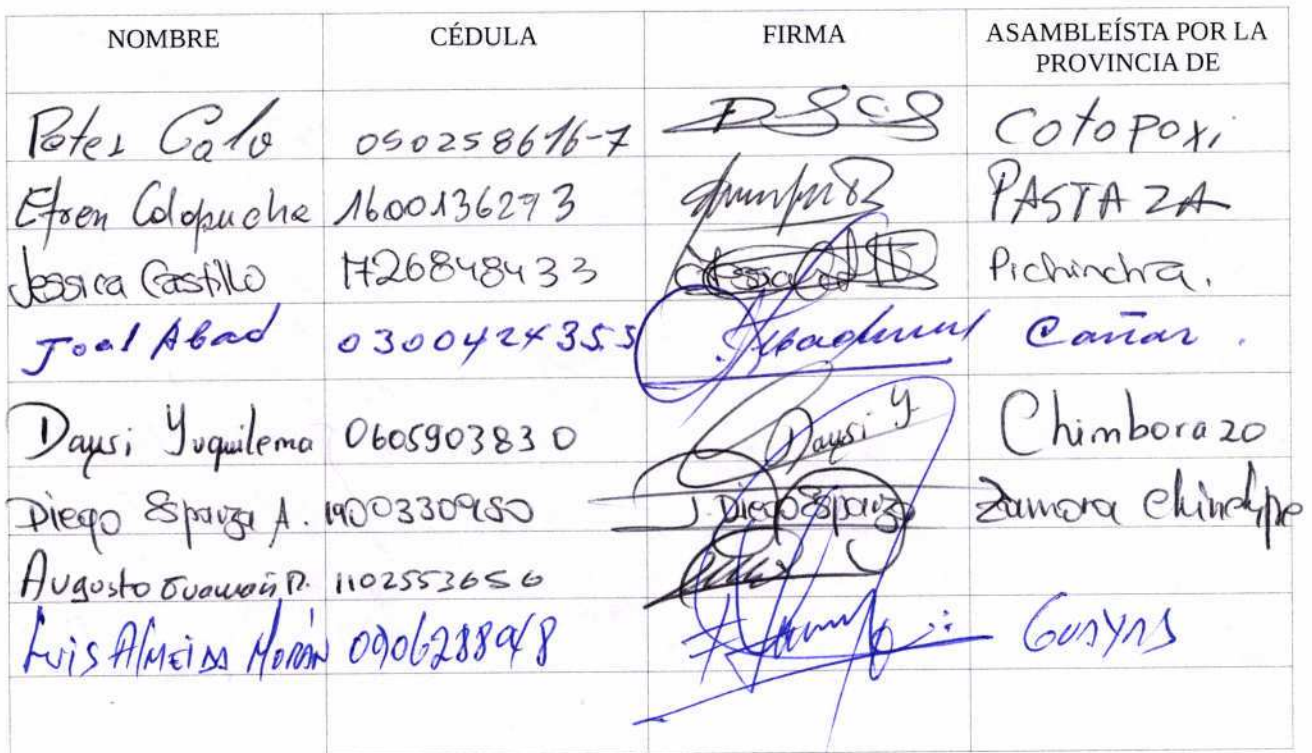 NOMBRE CÉDULA FIRMA ASAMBLEÍSTA POR LA PROVINCIA DE
Peter Calo 050258616-7 Cotopaxi
Efren Calapucha 1600136273 PASTAZA
Jessica Castillo 1726848433 Pichincha.
Joel Abad 0300424355 Cañar.
Daysi Yuquilema 0605903830 Daysi Y Chimborazo
Diego Esparza A. 1900330950 J. Diego Esparza Zamora Chinchipe
Augusto Guamán R. 1102553656
Luis Almeida Morán 0906288948 GUAYAS